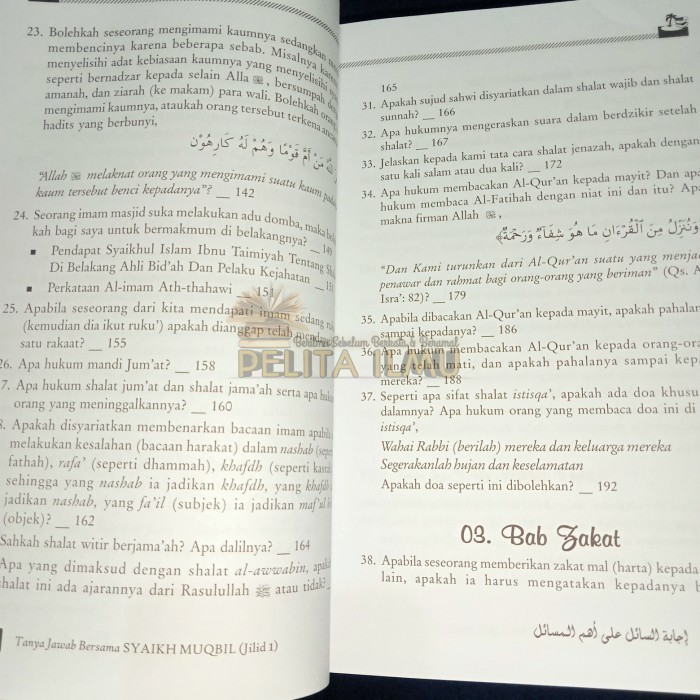 23. Bolehkah seseorang mengimami kaumnya sedangkan
membencinya karena beberapa sebab. Misalnya
menyelisihi adat kebiasaan kaumnya yang menyelisihi
seperti bernadzar kepada selain Alla ﷻ, bersumpah
amanah, dan ziarah (ke makam) para wali. Bolehkah
mengimami kaumnya, ataukah orang tersebut terkena
hadits yang berbunyi,
مَنْ أَمَّ قَوْمًا وَهُمْ لَهُ كَارِهُوْنَ
"Allah ﷻ melaknat orang yang mengimami suatu kaum
kaum tersebut benci kepadanya"? __ 142
24. Seorang imam masjid suka melakukan adu domba,
kah bagi saya untuk bermakmum di belakangnya? __ 149
▪ Pendapat Syaikhul Islam Ibnu Taimiyah Tentang
Di Belakang Ahli Bid'ah Dan Pelaku Kejahatan __
▪ Perkataan Al-imam Ath-thahawi __ 154
25. Apabila seseorang dari kita mendapati imam sedang
(kemudian dia ikut ruku') apakah dianggap telah
satu rakaat? __ 155
26. Apa hukum mandi Jum'at? __ 158
7. Apa hukum shalat jum'at dan shalat jama'ah serta apa
orang yang meninggalkannya? __ 160
8. Apakah disyariatkan membenarkan bacaan imam
melakukan kesalahan (bacaan harakat) dalam nashab
fathah), rafa' (seperti dhammah), khafdh (seperti
sehingga yang nashab ia jadikan khafdh, yang khafdh
jadikan nashab, yang fa'il (subjek) ia jadikan maf'ul
(objek)? __ 162
Sahkah shalat witir berjama'ah? Apa dalilnya? __ 164
Apa yang dimaksud dengan shalat al-awwabin,
shalat ini ada ajarannya dari Rasulullah ﷺ atau tidak?
Tanya Jawab Bersama SYAIKH MUQBIL (Jilid 1)
165
31. Apakah sujud sahwi disyariatkan dalam shalat wajib dan shalat
sunnah? __ 166
32. Apa hukumnya mengeraskan suara dalam berdzikir setelah
shalat? __ 167
33. Jelaskan kepada kami tata cara shalat jenazah, apakah dengan
satu kali salam atau dua kali? __ 172
34. Apa hukum membacakan Al-Qur'an kepada mayit? Dan
hukum membaca Al-Fatihah dengan niat ini dan itu?
makna firman Allah ﷻ,
وَنُنَزِّلُ مِنَ ٱلْقُرْءَانِ مَا هُوَ شِفَآءٌ وَرَحْمَةٌ﴾
"Dan Kami turunkan dari Al-Qur'an suatu yang
penawar dan rahmat bagi orang-orang yang beriman" (Qs.
Isra': 82)? __ 179
35. Apabila dibacakan Al-Qur'an kepada mayit, apakah
sampai kepadanya? __ 186
36. Apa hukum membacakan Al-Qur'an kepada
yang telah mati, dan apakah pahalanya sampai
mereka? __ 188
37. Seperti apa sifat shalat istisqa', apakah ada doa
dalamnya? Apa hukum orang yang membaca doa ini di
istisqa',
Wahai Rabbi (berilah) mereka dan keluarga mereka
Segerakanlah hujan dan keselamatan
Apakah doa seperti ini dibolehkan? __ 192
03. Bab Zakat
38. Apabila seseorang memberikan zakat mal (harta) kepada
lain, apakah ia harus mengatakan kepadanya
إجابة السائل على أهم المسائل
Berilmu Sebelum Berkata & Beramal
PELITA ILMU